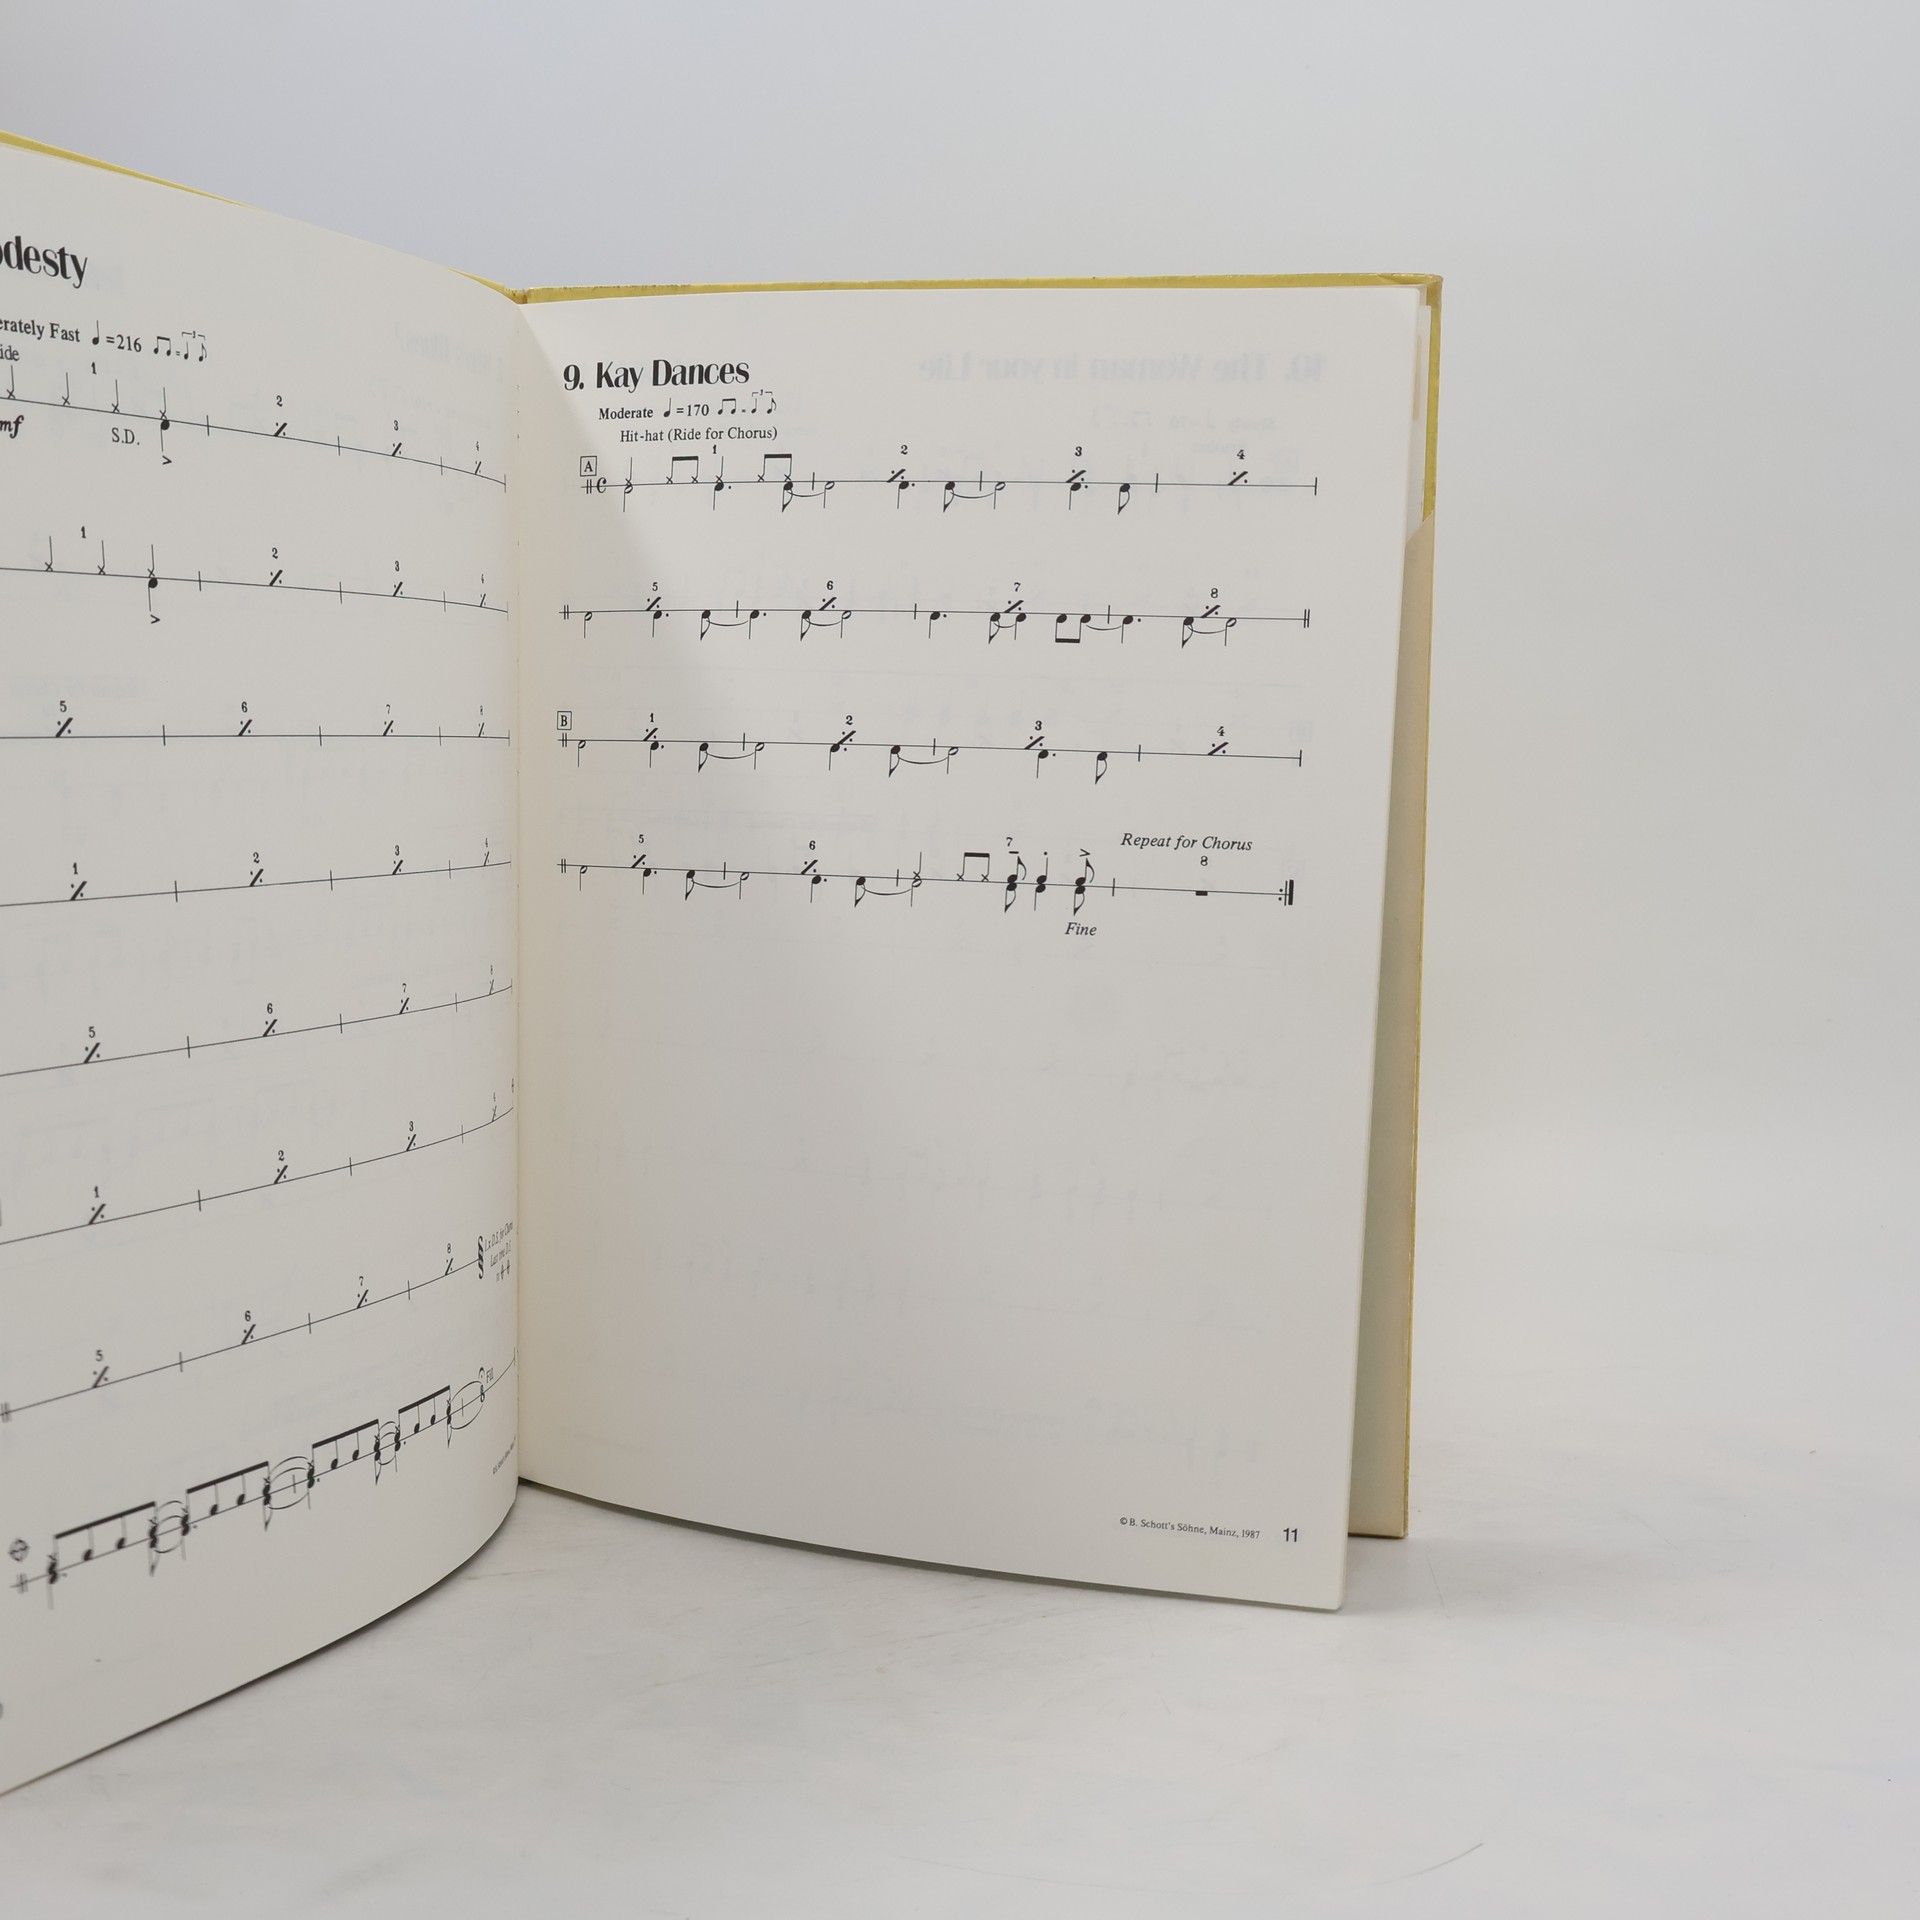 desty
erately Fast ♩=216
ide
1 2 3 4
mf S.D.
1 2 3 4
5 6 7 8
1 2 3 4
5 6 7 8
1 2 3 4
5 6 7 8
Fill
9. Kay Dances
Moderate ♩=170
Hit-hat (Ride for Chorus)
A 1 2 3 4
5 6 7 8
B 1 2 3 4
Repeat for Chorus
5 6 7 8
Fine
© B. Schott's Söhne, Mainz, 1987 11